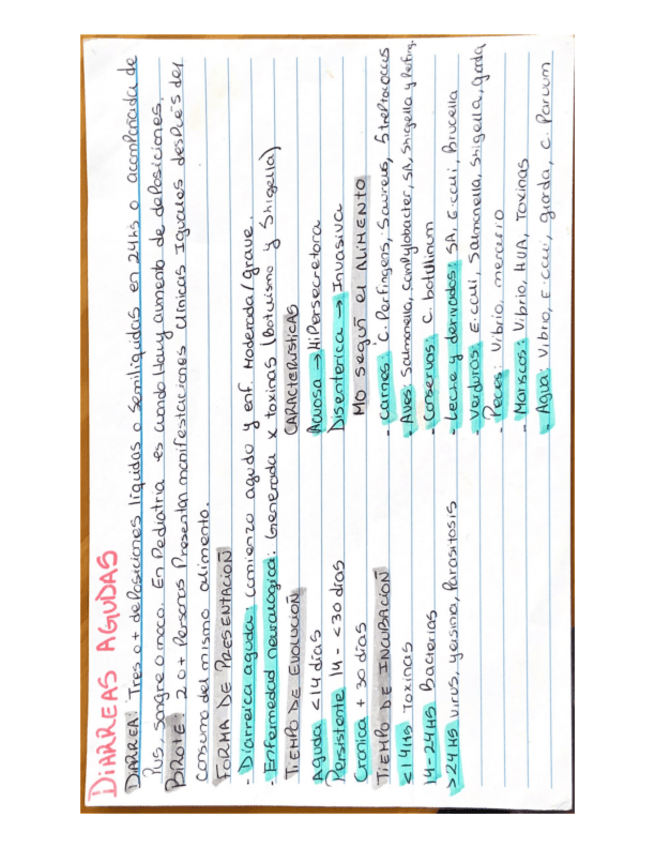 DIARREAS AGUDAS
DIARREA: Tres o + deposiciones líquidas o semilíquidas en 24hs o acompañada de
pus, sangre o moco. En Pediatria es cuando Hauy aumento de deposiciones.
BROTE: 2 o + Personas Presentan manifestaciones clínicas Iguales después del
consumo del mismo alimento.
FORMA DE PRESENTACIÓN
- Diarreica aguda: comienzo agudo y enf. Moderada/grave.
- Enfermedad neurologica: Generada x toxinas (Botulismo y Shigella)
TIEMPO DE EVOLUCIÓN
Aguda <14 días
Persistente 14 - <30 días
Cronica + 30 días
TIEMPO DE INCUBACIÓN
<14Hs Toxinas
14-24Hs Bacterias
>24Hs Virus, yersinia, Parasitosis
CARACTERISTICAS
Acuosa → Hipersecretora
Disenterica → Invasiva
MO según el ALIMENTO
- Carnes: C. Perfingens, S.aureus, Streptococcus
- Aves: Salmonella, campylobacter, SA, Shigella y Perfing.
- Conservas: C. botulinum
- Leche y derivados: SA, E.coli, Brucella
- Verduras: E.coli, Salmonella, Shigella, giarda
- Peces: Vibrio, mercurio
- Mariscos: Vibrio, HUA, Toxinas
- Agua: Vibrio, E.coli, giarda, C. Parvum